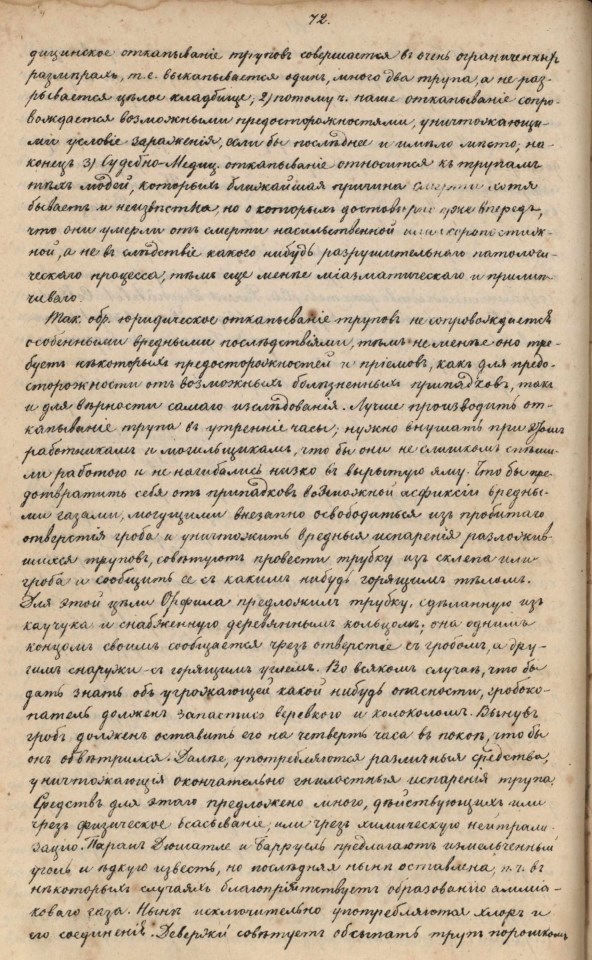 72.
дицинское откапыванiе труповъ совершается въ очень ограниченныхъ
размѣрахъ, т.е. выкапывается одинъ, много два трупа, а не раз-
рывается цѣлое кладбище; 2) потому ч. наше откапыванiе сопро-
вождается возможными предосторожностями, уничтожающи-
ми условiе зараженiя, если бы послѣднее и имѣло мѣсто; на-
конецъ 3) Судебно-Медиц. откапыванiе относится къ трупамъ
тѣхъ людей, которыхъ ближайшая причина смерти хотя
бываетъ и неизвѣстна, но о которыхъ достовѣрно уже впередъ,
что они умерли отъ смерти насильственной или скоропостиж-
ной, а не въ слѣдствiе какого нибудь разрушительнаго патологи-
ческаго процесса, тѣмъ еще менѣе мiазматическаго и прилип-
чиваго.
Так. обр. юридическое откапыванiе труповъ не сопровождается
особенными вредными послѣдствiями, тѣмъ не менѣе оно тре-
буетъ нѣкоторыхъ предосторожностей и прiемовъ, какъ для предо-
сторожности отъ возможныхъ болѣзненныхъ припадковъ, такъ
и для вѣрности самаго изслѣдованiя. Лучше производить от-
капыванiе трупа въ утреннiе часы; нужно внушать при этомъ
работникамъ и могильщикамъ, что бы они не слишкомъ спѣши-
ли работою и не нагибались низко въ вырытую яму. Что бы пре-
дотвратить себя отъ припадковъ возможной асфиксiи вредны-
ми газами, могущими внезапно освободиться изъ пробитаго
отверстiя гроба и уничтожить вредныя испаренiя разложив-
шихся труповъ, совѣтуютъ провести трубку изъ склепа или
гроба и сообщить ее съ какимъ нибудь горящимъ тѣломъ.
Для этой цѣли Орфила предложилъ трубку, сдѣланную изъ
каучука и снабженную деревяннымъ кольцомъ; она однимъ
концомъ своимъ сообщается чрезъ отверстiе съ гробомъ, а дру-
гимъ снаружи съ горящимъ углемъ. Во всякомъ случаѣ, что бы
дать знать объ угрожающей какой нибудь опасности, гробоко-
патель долженъ запастись веревкого и колоколомъ. Вынувъ
гробъ должен оставить его на четверть часа въ покоѣ, что бы
онъ обвѣтрился. Далѣе, употребляются различныя средства,
уничтожающiя окончательно гнилостныя испаренiя трупа.
Средствъ для этаго предложено много, дѣйствующихъ или
чрезъ физическое всасыванiе, или чрезъ химическую нейтрали-
зацiю. Паранъ Дюшатле и Барруэль предлагаютъ измельченный
уголь и ѣдкую известь, но послѣдняя нынѣ оставлена, п.ч. въ
нѣкоторыхъ случаяхъ благопрiятствуетъ образованiю аммiа-
коваго газа. Нынѣ исключительно употребляются хлоръ и
его соединенiя. Девержи совѣтуетъ обсыпать трупъ порошкомъ